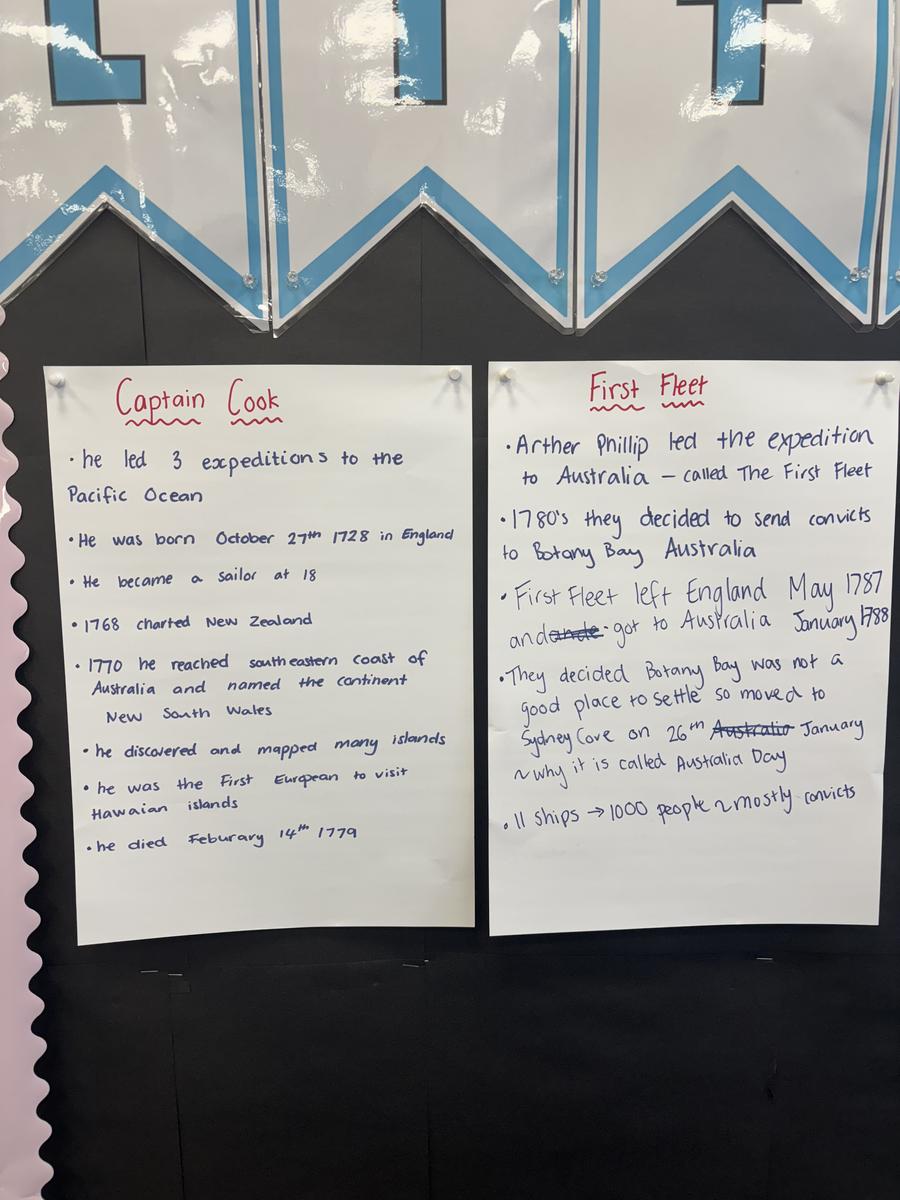 L I T
Captain Cook
• he led 3 expeditions to the
Pacific Ocean
• He was born October 27th 1728 in England
• He became a sailor at 18
• 1768 charted New Zealand
• 1770 he reached south eastern coast of
Australia and named the continent
New South Wales
• he discovered and mapped many islands
• he was the First European to visit
Hawaian islands
• he died Feburary 14th 1779
First Fleet
• Arther Phillip led the expedition
to Australia – called The First Fleet
• 1780's they decided to send convicts
to Botany Bay Australia
• First Fleet left England May 1787
and ande got to Australia January 1788
• They decided Botany Bay was not a
good place to settle so moved to
Sydney Cove on 26th Australia January
~ why it is called Australia Day
• 11 ships → 1000 people ~ mostly convicts